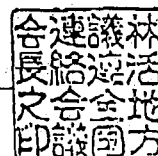 林活地方
議連全国
連絡会議
会長之印